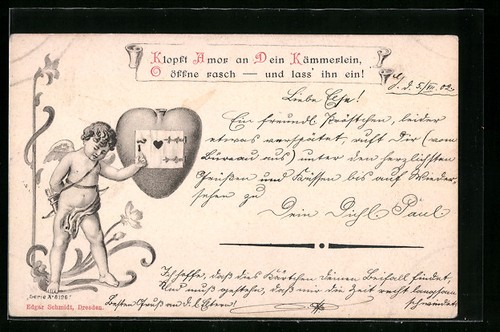 Klopft Amor an Dein Kämmerlein,
O öffne rasch — und lass' ihn ein!
d. 5/III. 02.
Liebe Else!
Ein freundl. Pröstchen, leider
etwas verspätet, ruft Dir (vom
Bureau aus) unter den herzlichsten
Grüßen und Küssen bis auf Wieder-
sehen zu
Dein Dichl. Paul
Ich hoffe, daß das Kärtchen Deinen Beifall findet,
und muß gestehn, daß mir die Zeit recht langsam
schwindet
Besten Gruß an d. l. Eltern!
Serie X° 8196
Edgar Schmidt, Dresden.